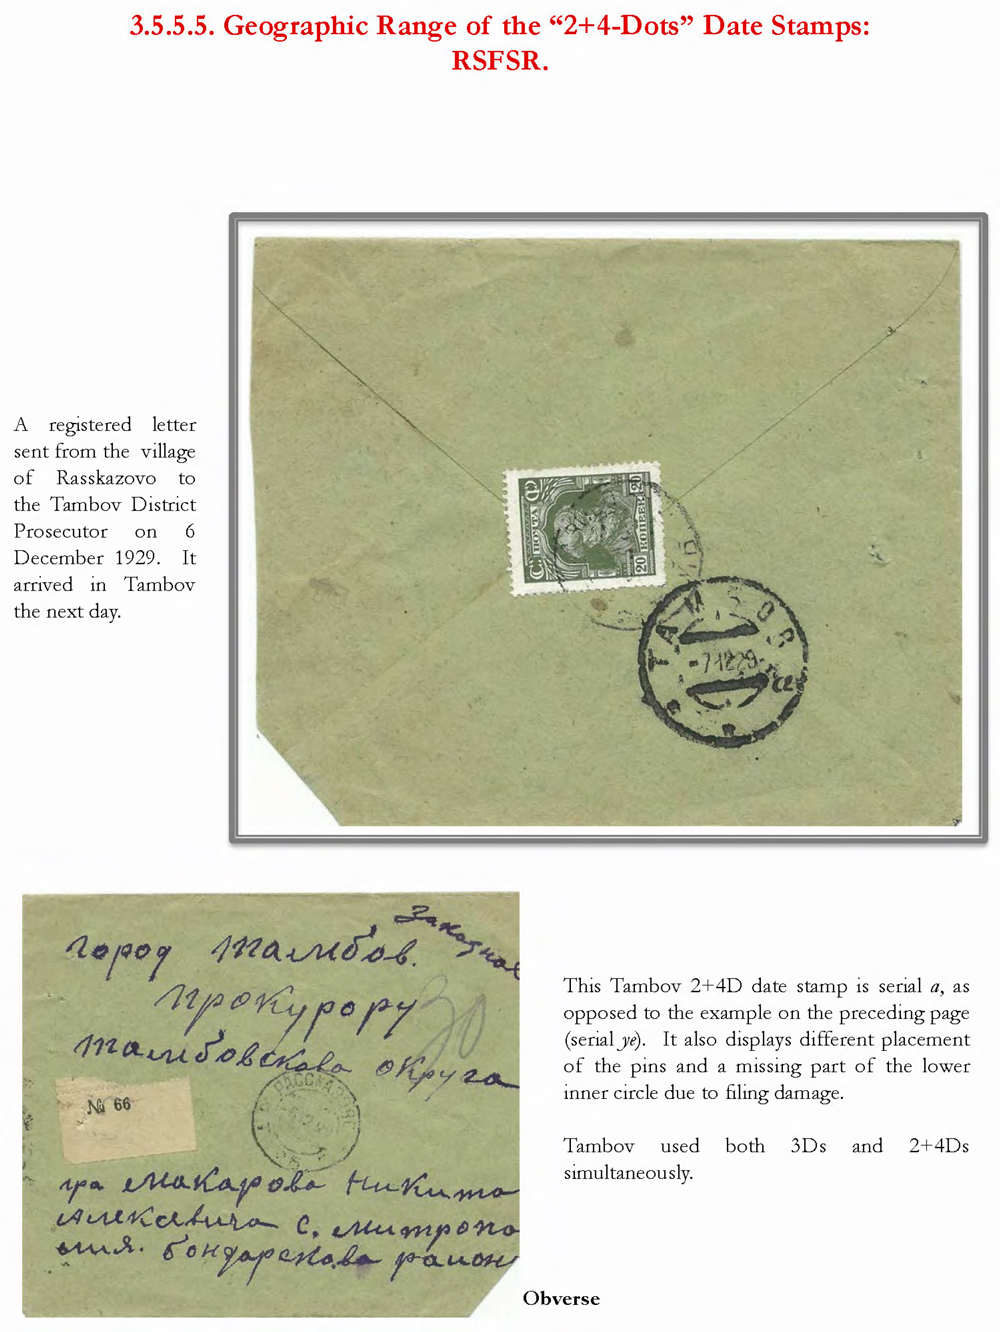 3.5.5.5. Geographic Range of the “2+4-Dots” Date Stamps:
RSFSR.
A registered letter
sent from the village
of Rasskazovo to
the Tambov District
Prosecutor on 6
December 1929. It
arrived in Tambov
the next day.
ПОЧТА
20 КОПЕЕК 20
ТАМБОВ
-7.12.29
а
Заказное
город Тамбов.
Прокурору
30
Тамбовскова округа
РАССКАЗОВО
№ 66
гра Макарова Никита
Алексевича с. Митропо
лия. бондарскова район
This Tambov 2+4D date stamp is serial a, as
opposed to the example on the preceding page
(serial ye). It also displays different placement
of the pins and a missing part of the lower
inner circle due to filing damage.
Tambov used both 3Ds and 2+4Ds
simultaneously.
Obverse